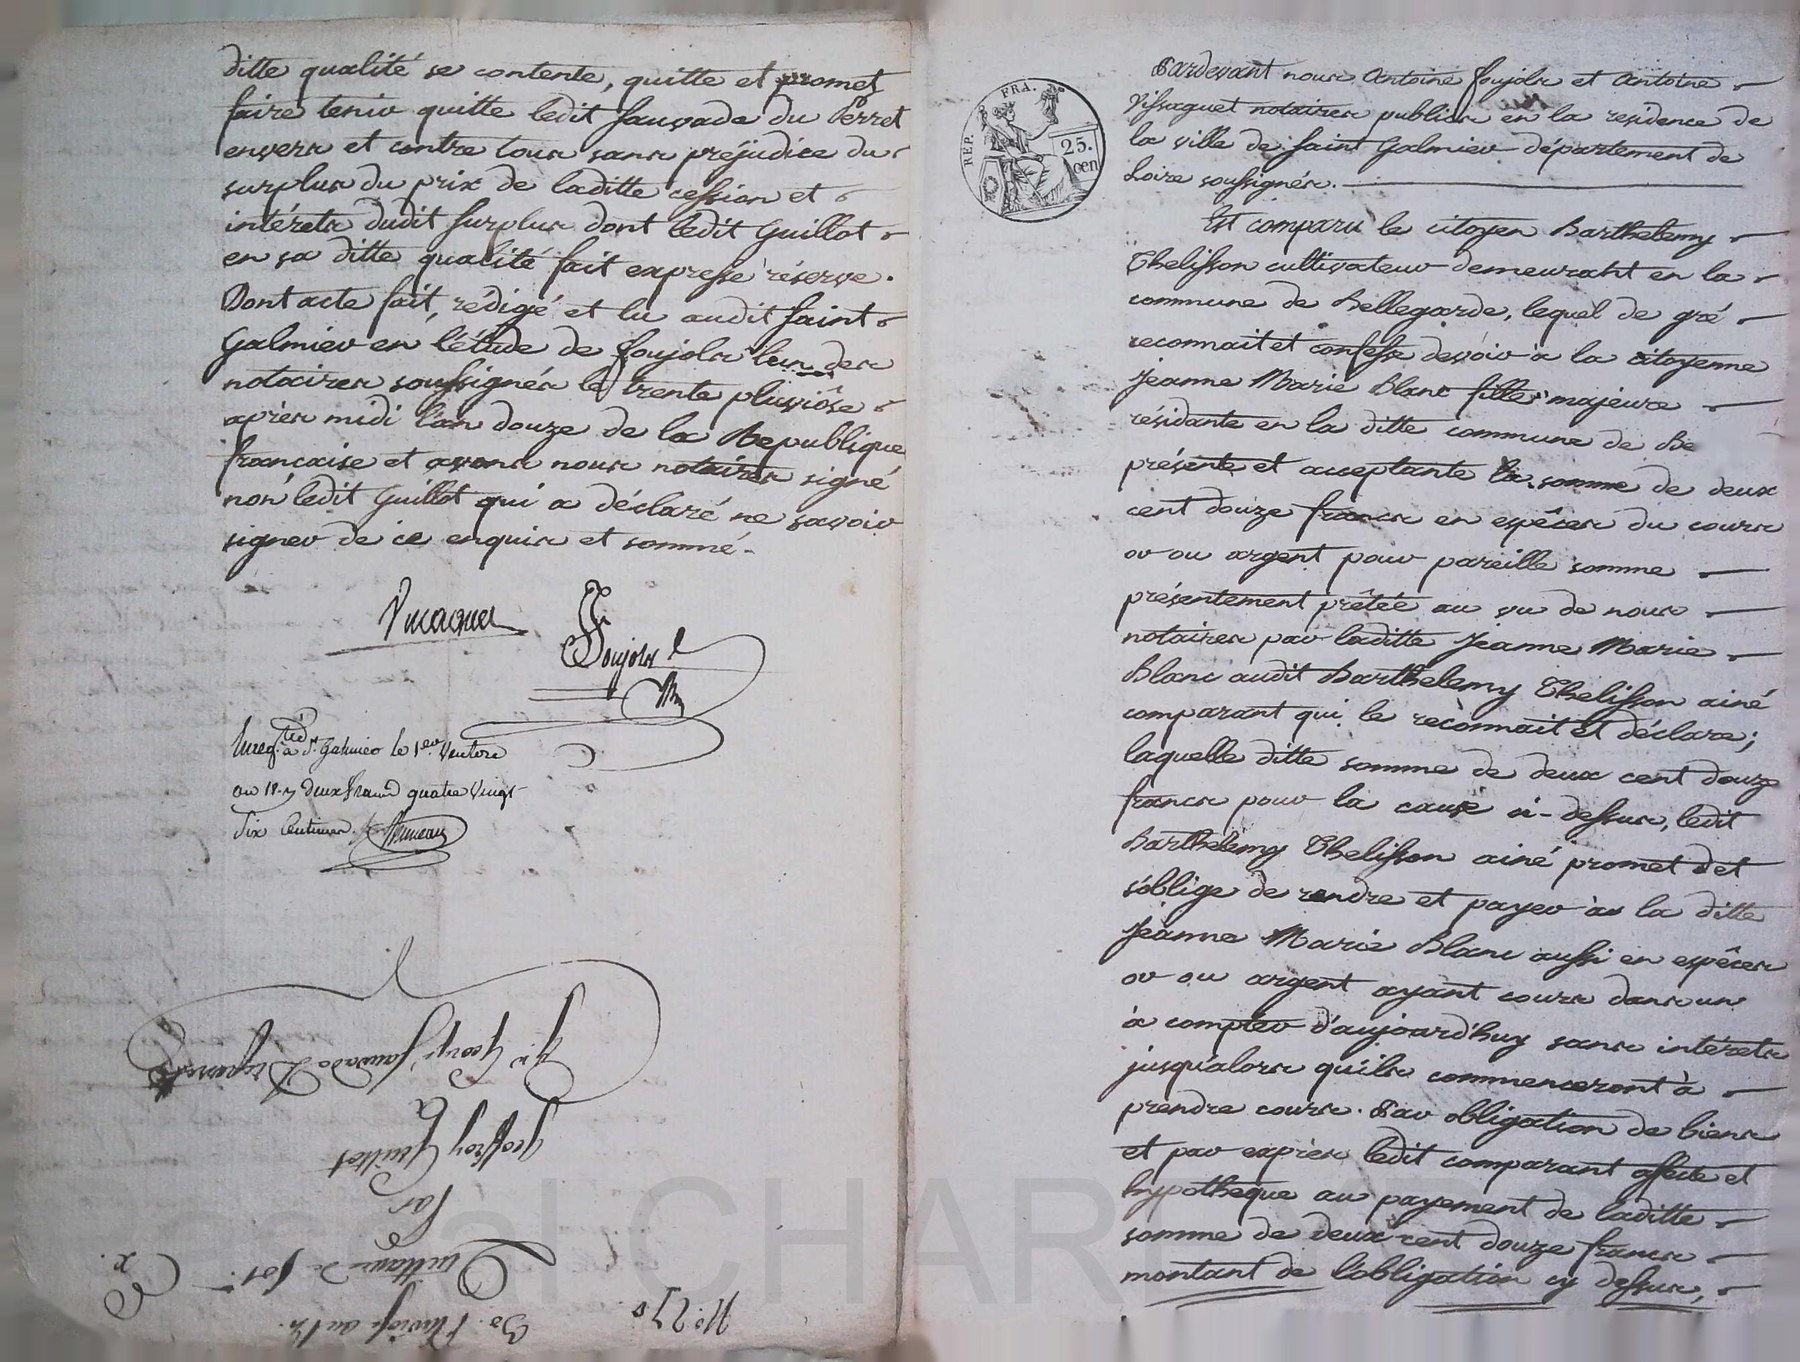 ditte qualité se contente, quitte et promet
faire tenir quitte ledit Sauvade du Perret
envers et contre tous sans préjudice du
surplus du prix de laditte cession et
intérets dudit surplus dont ledit Guillot
en sa ditte qualité fait expresse réserve.
Dont acte fait, rédigé et lu audit Saint
Galmier en l'étude de Soujols l'un des
notaires soussignés le trente pluviôse
après midi l'an douze de la Republique
francaise et avons nous notaires signé
non ledit Guillot qui a déclaré ne savoir
signer de ce enquis et sommé.
Soujols
Enreg.tré à St Galmier le 1er Ventose
an 12. deux francs quatre vingt
dix Centimes
N.° 270
30. Pluviose an 12.
Quittance de
Par
Geoffroy Guillot
à
Sauvade Duperret
REP. FRA.
25.
cen
Pardevant nous Antoine Soujols et Antoine
Vissaguet notaires publics en la residence de
la ville de Saint Galmier département de
Loire soussignés.
Est comparu le citoyen Barthelemy
Thelisson cultivateur demeurant en la
commune de Bellegarde, lequel de gré
reconnait et confesse devoir à la citoyenne
Jeanne Marie Blanc fille majeure
résidante en la ditte commune de Be
présente et acceptante la somme de deux
cent douze francs en espêces du cours
or ou argent pour pareille somme
présentement prêtée au vu de nous
notaires par laditte Jeanne Marie
Blanc audit Barthelemy Thelisson ainé
comparant qui le reconnait et déclare;
laquelle ditte somme de deux cent douze
francs pour la cause si-dessus, ledit
Barthelemy Thelisson ainé promet et
s'oblige de rendre et payer à la ditte
Jeanne Marie Blanc aussi en espêces
or ou argent ayant cours dans un
à compter d'aujourd'huy sans intérets
jusqu'alors qu'ils commenceront à
prendre cours. Par obligation de biens
et par exprès ledit comparant affecte et
hypotheque au payement de laditte
somme de deux cent douze francs
montant de l'obligation cy dessus,
CHAR